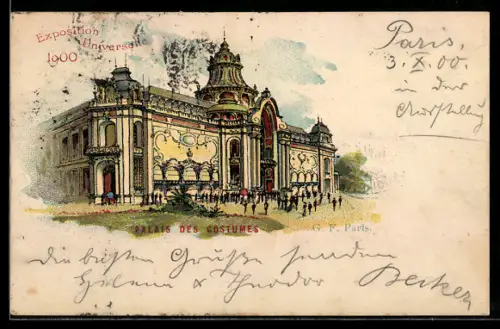 Exposition
Universelle
1900
Paris,
3. X. 00.
in der
Ausstellung
PALAIS DES COSTUMES
G. F. Paris.
Die besten Grüße senden
Helena & Theodor Becker